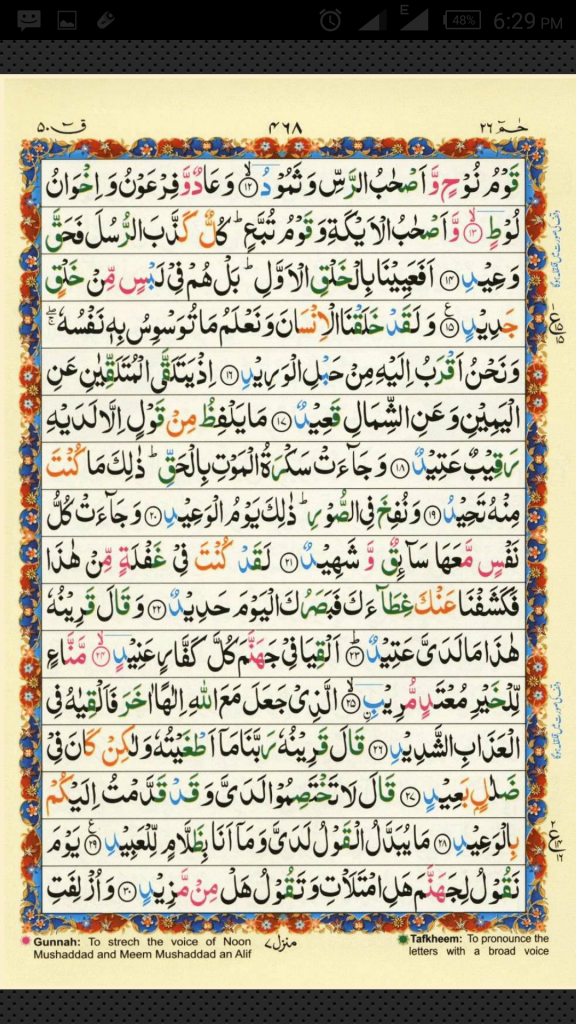 6:29 PM
E
48%
قٓ ۵۰
۴۶۸
حٰمٓ ۲۶
قَوْمُ نُوْحٍ وَّاَصْحٰبُ الرَّسِّ وَثَمُوْدُ ﴿۱۲﴾ وَعَادٌ وَّفِرْعَوْنُ وَاِخْوَانُ
لُوْطٍ ﴿۱۳﴾ وَّاَصْحٰبُ الْاَيْكَةِ وَقَوْمُ تُبَّعٍ ؕ كُلٌّ كَذَّبَ الرُّسُلَ فَحَقَّ
وَعِيْدِ ﴿۱۴﴾ اَفَعَيِيْنَا بِالْخَلْقِ الْاَوَّلِ ؕ بَلْ هُمْ فِيْ لَبْسٍ مِّنْ خَلْقٍ
جَدِيْدٍ ﴿۱۵﴾ وَلَقَدْ خَلَقْنَا الْاِنْسَانَ وَنَعْلَمُ مَا تُوَسْوِسُ بِهٖ نَفْسُهٗ ۚ
وَنَحْنُ اَقْرَبُ اِلَيْهِ مِنْ حَبْلِ الْوَرِيْدِ ﴿۱۶﴾ اِذْ يَتَلَقَّى الْمُتَلَقِّيٰنِ عَنِ
الْيَمِيْنِ وَعَنِ الشِّمَالِ قَعِيْدٌ ﴿۱۷﴾ مَا يَلْفِظُ مِنْ قَوْلٍ اِلَّا لَدَيْهِ
رَقِيْبٌ عَتِيْدٌ ﴿۱۸﴾ وَجَآءَتْ سَكْرَةُ الْمَوْتِ بِالْحَقِّ ؕ ذٰلِكَ مَا كُنْتَ
مِنْهُ تَحِيْدُ ﴿۱۹﴾ وَنُفِخَ فِي الصُّوْرِ ؕ ذٰلِكَ يَوْمُ الْوَعِيْدِ ﴿۲۰﴾ وَجَآءَتْ كُلُّ
نَفْسٍ مَّعَهَا سَآئِقٌ وَّشَهِيْدٌ ﴿۲۱﴾ لَقَدْ كُنْتَ فِيْ غَفْلَةٍ مِّنْ هٰذَا
فَكَشَفْنَا عَنْكَ غِطَآءَكَ فَبَصَرُكَ الْيَوْمَ حَدِيْدٌ ﴿۲۲﴾ وَقَالَ قَرِيْنُهٗ
هٰذَا مَا لَدَيَّ عَتِيْدٌ ﴿۲۳﴾ اَلْقِيَا فِيْ جَهَنَّمَ كُلَّ كَفَّارٍ عَنِيْدٍ ﴿۲۴﴾ مَّنَّاعٍ
لِّلْخَيْرِ مُعْتَدٍ مُّرِيْبِ ﴿۲۵﴾ الَّذِيْ جَعَلَ مَعَ اللّٰهِ اِلٰهًا اٰخَرَ فَاَلْقِيٰهُ فِي
الْعَذَابِ الشَّدِيْدِ ﴿۲۶﴾ قَالَ قَرِيْنُهٗ رَبَّنَا مَاۤ اَطْغَيْتُهٗ وَلٰكِنْ كَانَ فِيْ
ضَلٰلٍ بَعِيْدٍ ﴿۲۷﴾ قَالَ لَا تَخْتَصِمُوْا لَدَيَّ وَقَدْ قَدَّمْتُ اِلَيْكُمْ
بِالْوَعِيْدِ ﴿۲۸﴾ مَا يُبَدَّلُ الْقَوْلُ لَدَيَّ وَمَاۤ اَنَا بِظَلَّامٍ لِّلْعَبِيْدِ ﴿۲۹﴾ يَوْمَ
نَقُوْلُ لِجَهَنَّمَ هَلِ امْتَلَاْتِ وَتَقُوْلُ هَلْ مِنْ مَّزِيْدٍ ﴿۳۰﴾ وَاُزْلِفَتِ
Gunnah: To strech the voice of Noon
Mushaddad and Meem Mushaddad an Alif
منزل ۷
Tafkheem: To pronounce the
letters with a broad voice